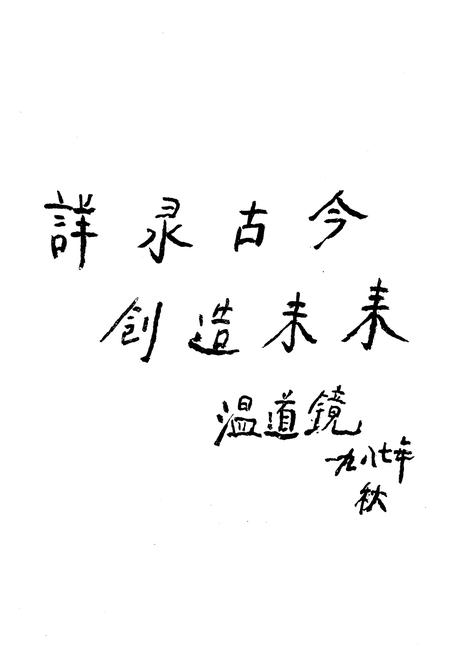 詳录古今
创造未来
温道鏡
一九八七年
秋